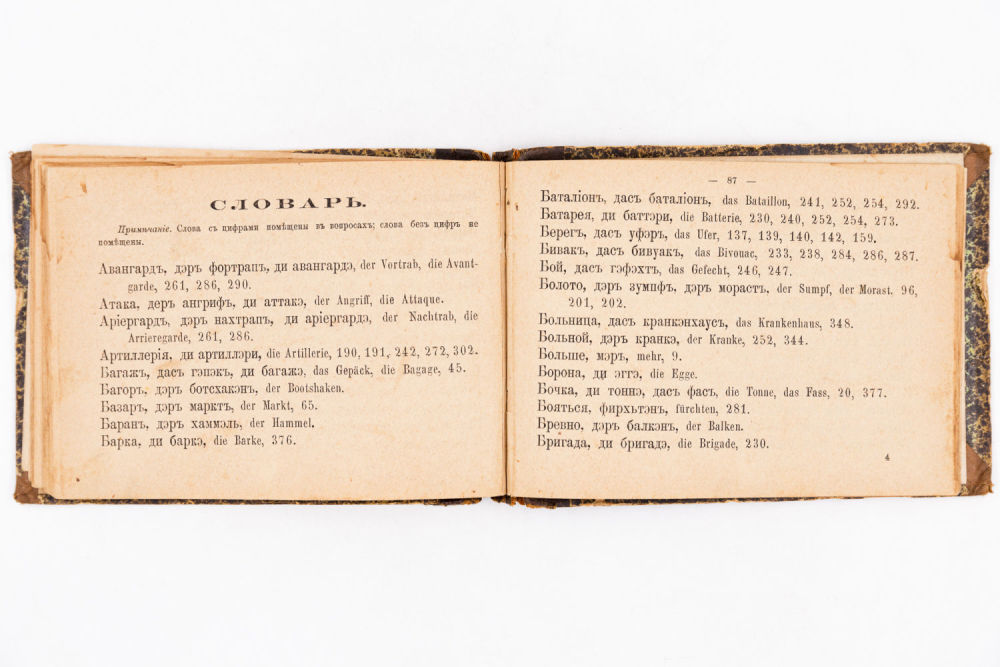 СЛОВАРЬ.
Примѣчаніе. Слова съ цифрами помѣщены въ вопросахъ; слова безъ цифръ не
помѣщены.
Авангардъ, дэръ фортрапъ, ди авангардэ, der Vortrab, die Avant-
garde, 261, 286, 290.
Атака, деръ ангрифъ, ди аттакэ, der Angriff, die Attaque.
Аріергардъ, дэръ нахтрапъ, ди аріергардэ, der Nachtrab, die
Arrieregarde, 261, 286.
Артиллерія, ди артиллэри, die Artillerie, 190, 191, 242, 272, 302.
Багажъ, дасъ гэпэкъ, ди багажэ, das Gepäck, die Bagage, 45.
Багоръ, дэръ ботсхакэнъ, der Bootshaken.
Базаръ, дэръ марктъ, der Markt, 65.
Баранъ, дэръ хаммэль, der Hammel.
Барка, ди баркэ, die Barke, 376.
— 87 —
Баталіонъ, дасъ баталіонъ, das Bataillon, 241, 252, 254, 292.
Батарея, ди баттэри, die Batterie, 230, 240, 252, 254, 273.
Берегъ, дасъ уфэръ, das Ufer, 137, 139, 140, 142, 159.
Бивакъ, дасъ бивуакъ, das Bivouac, 233, 238, 284, 286, 287.
Бой, дасъ гэфэхтъ, das Gefecht, 246, 247.
Болото, дэръ зумпфъ, дэръ морастъ, der Sumpf, der Morast. 96,
201, 202.
Больница, дасъ кранкэнхаусъ, das Krankenhaus, 348.
Больной, дэръ кранкэ, der Kranke, 252, 344.
Больше, мэръ, mehr, 9.
Борона, ди эггэ, die Egge.
Бочка, ди тоннэ, дасъ фасъ, die Tonne, das Fass, 20, 377.
Бояться, фирхьтэнъ, fürchten, 281.
Бревно, дэръ балкэнъ, der Balken.
Бригада, ди бригадэ, die Brigade, 230.
4